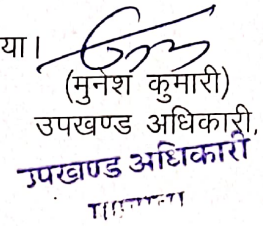 या।
(मुनेश कुमारी)
उपखण्ड अधिकारी,
उपखण्ड अधिकारी